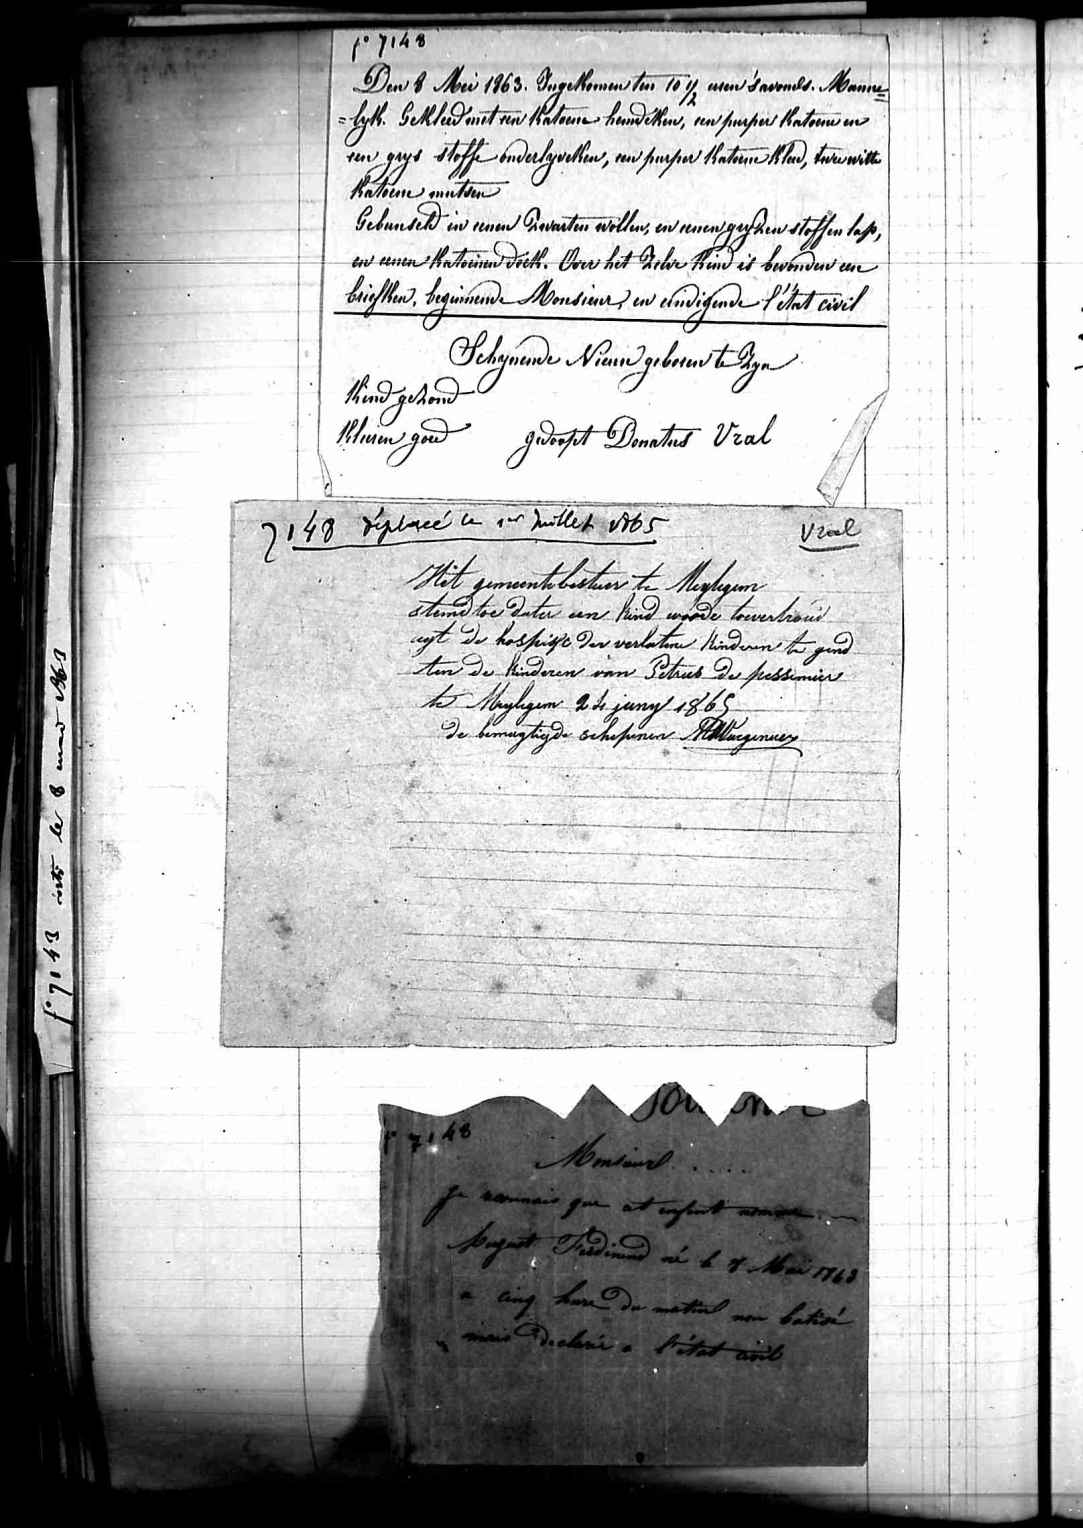 f° 7148
Den 8 Mei 1863. Ingekomen ten 10 1/2 uren 's avonds. Manne=
=lyk. Gekleed met een katoene hemdeken, een purper katoene en
een grys stoffe onderlyveken, een purper katoene kleed, twee witte
katoene mutsen
Gebunseld in eenen zwarten wollen, en eenen gryzen stoffen lap,
en eenen katoenen doek. Over het zelve kind is bevonden een
briefken, beginnende Monsieur, en eindigende l'état civil
Schynende Nieuw geboren te zyn
Kind gezond
Kleeren goed gedoopt Donatus Vral
7148 déplacé le 1er Juillet 1865 Vral
Hèt gemeentebestuer te Meylegem
stemd toe dater een kind woorde toevertroud
uyt de hospise der verlatene kinderen te gend
ten de kinderen van Petrus de pessemier
te Meylegem 24 juny 1865
de bemagtigde schepenen
f° 7148
Monsieur . . . . .
Je reconnais que cet enfant nommé
August Ferdinand né le 7 Mai 1863
a cinq hure du matin non batisé
mais declaré a l'état civil
f° 7148 intr le 8 mai 1863